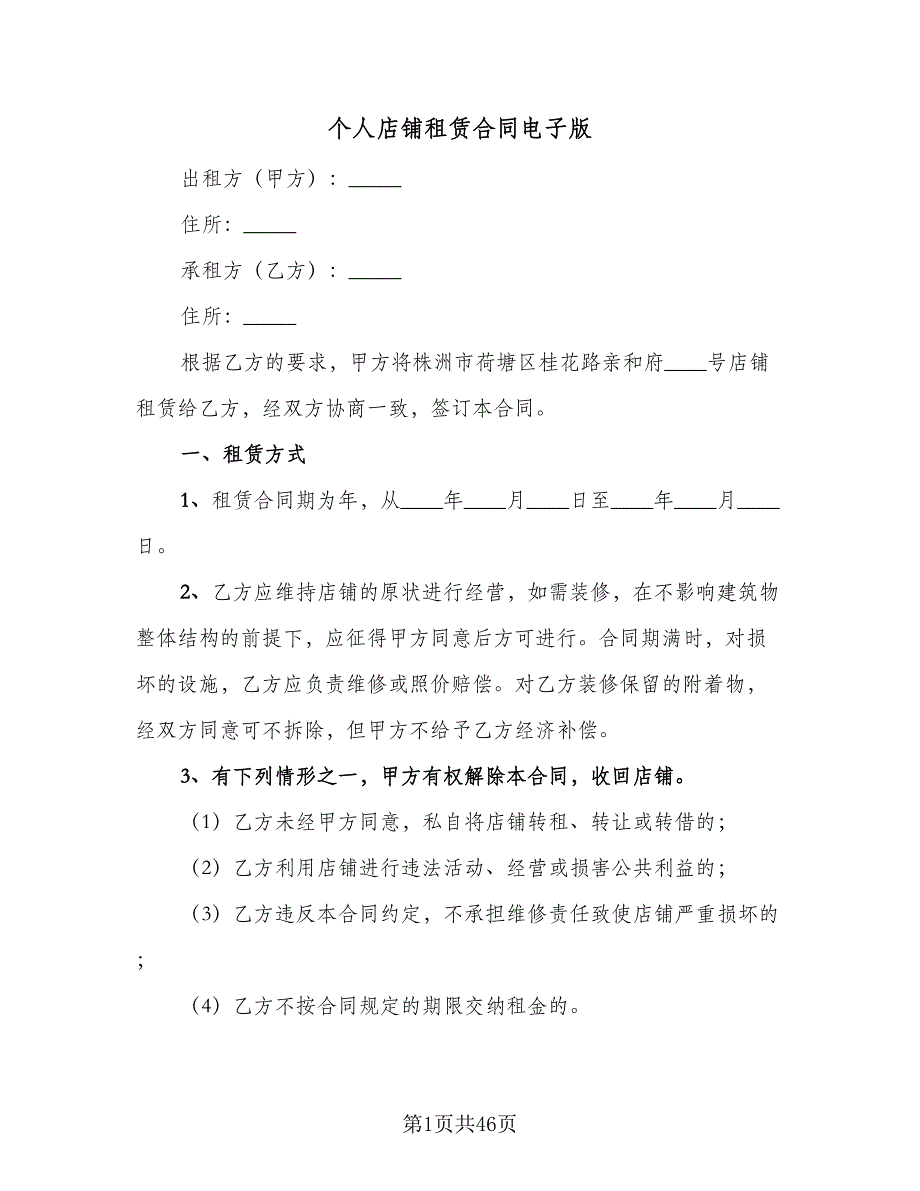 个人店铺租赁合同电子版
出租方（甲方）：_____
住所：_____
承租方（乙方）：_____
住所：_____
根据乙方的要求，甲方将株洲市荷塘区桂花路亲和府____号店铺
租赁给乙方，经双方协商一致，签订本合同。
一、租赁方式
1、租赁合同期为年，从____年____月____日至____年____月____
日。
2、乙方应维持店铺的原状进行经营，如需装修，在不影响建筑物
整体结构的前提下，应征得甲方同意后方可进行。合同期满时，对损
坏的设施，乙方应负责维修或照价赔偿。对乙方装修保留的附着物，
经双方同意可不拆除，但甲方不给予乙方经济补偿。
3、有下列情形之一，甲方有权解除本合同，收回店铺。
（1）乙方未经甲方同意，私自将店铺转租、转让或转借的；
（2）乙方利用店铺进行违法活动、经营或损害公共利益的；
（3）乙方违反本合同约定，不承担维修责任致使店铺严重损坏的
；
（4）乙方不按合同规定的期限交纳租金的。
第1页共46页